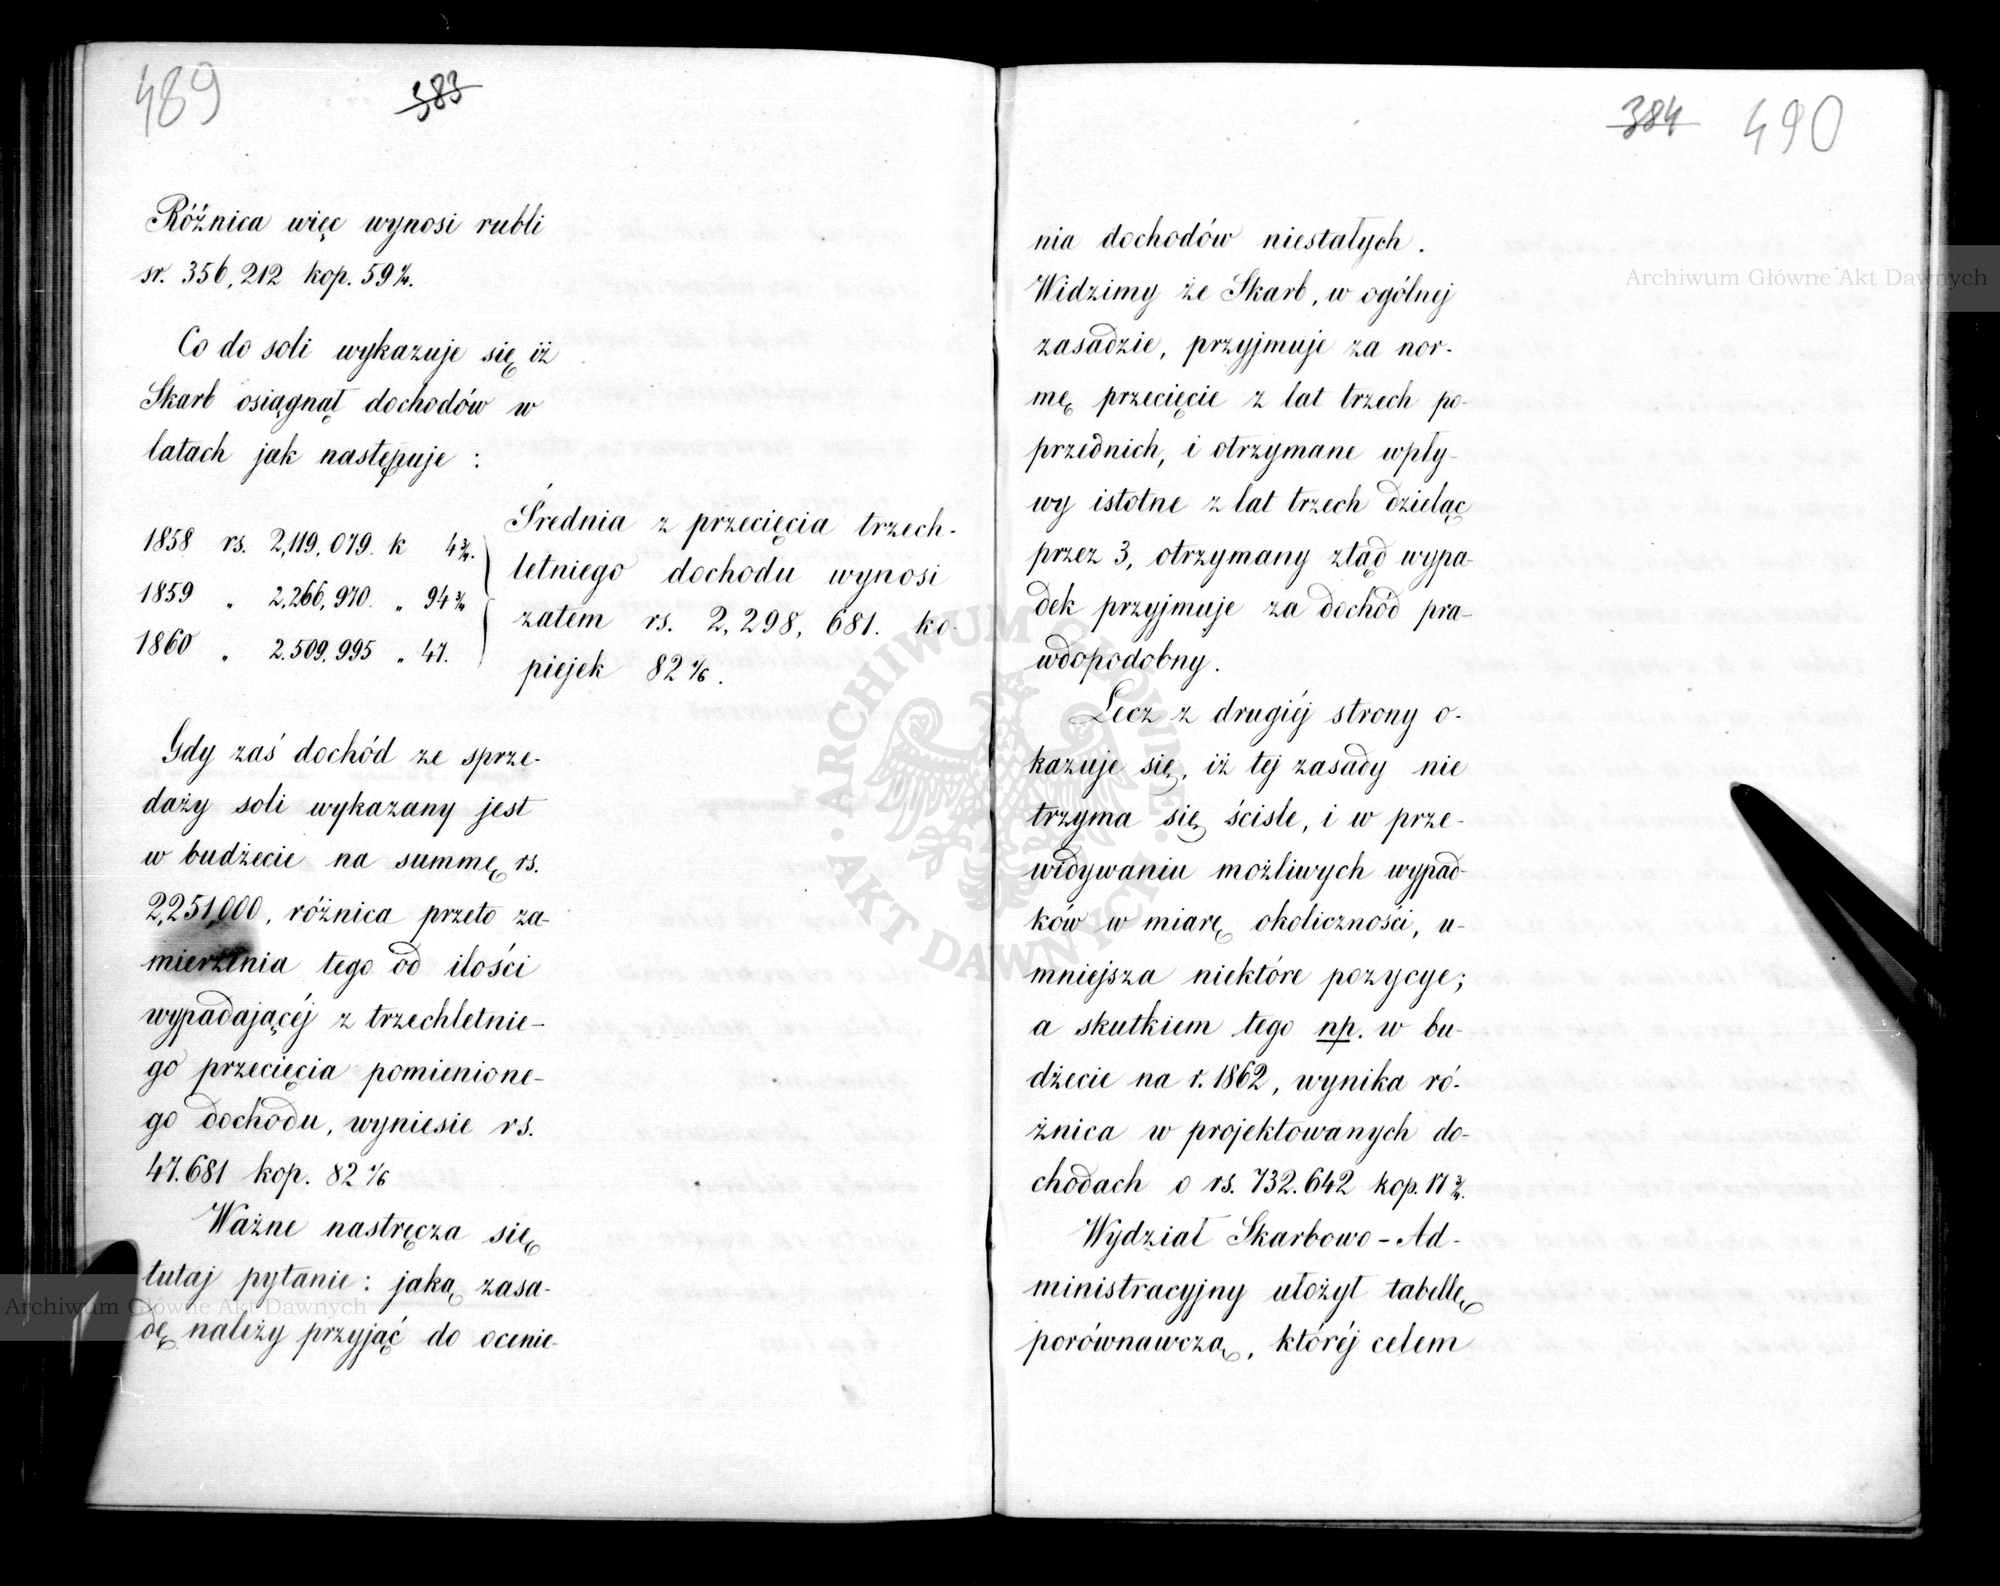 489 383
Różnica więc wynosi rubli
sr. 356,212 kop. 59 2/4.
Co do soli wykazuje się iż
Skarb osiągnął dochodów w
latach jak następuje :
1858 rs. 2,119,079. k 4 3/4.
1859 „ 2,266,970. „ 94 3/4
1860 „ 2.509,995 „ 47.
Średnia z przecięcia trzech-
letniego dochodu wynosi
zatem rs. 2,298,681. ko-
piejek 82 4/6.
Gdy zaś dochód ze sprze-
daży soli wykazany jest
w budżecie na summę rs.
2,251,000, różnica przeto za-
mierzenia tego od ilości
wypadającéj z trzechletnie-
go przecięcia pomienione-
go dochodu, wyniesie rs.
47.681 kop. 82 4/6
Ważne nastręcza się
tutaj pytanie : jaką zasa-
dę należy przyjąć do ocenie-
384 490
nia dochodów niestałych.
Widzimy że Skarb, w ogólnej
zasadzie, przyjmuje za nor-
mę przecięcie z lat trzech po-
przednich, i otrzymane wpły-
wy istotne z lat trzech dzieląc
przez 3, otrzymany ztąd wypa-
dek przyjmuje za dochód pra-
wdopodobny.
Lecz z drugiéj strony o-
kazuje się, iż tej zasady nie
trzyma się ściśle, i w prze-
widywaniu możliwych wypad-
ków w miarę okoliczności, u-
mniejsza niektóre pozycye;
a skutkiem tego np. w bu-
dżecie na r. 1862, wynika ró-
żnica w projektowanych do-
chodach o rs. 732.642 kop. 17 3/4.
Wydział Skarbowo-Ad-
ministracyjny ułożył tabellę
porównawczą, któréj celem
Archiwum Główne Akt Dawnych
Archiwum Główne Akt Dawnych
ARCHIWUM GŁÓWNE AKT DAWNYCH